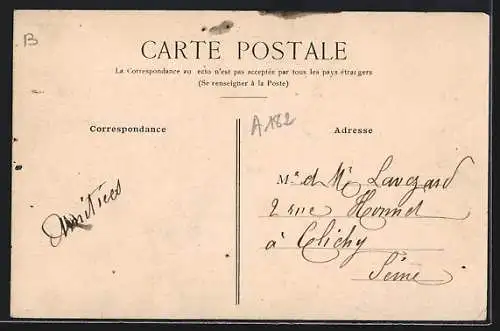 B
CARTE POSTALE
La Correspondance au recto n'est pas acceptée par tous les pays étrangers
(Se renseigner à la Poste)
A182
Correspondance
Adresse
Amitiées
M
2 rue
à Clichy
Seine